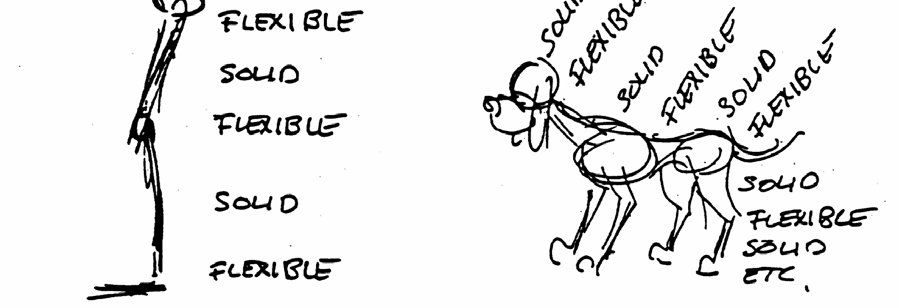 FLEXIBLE
SOLID
FLEXIBLE
SOLID
FLEXIBLE
SOLID
FLEXIBLE
SOLID
FLEXIBLE
SOLID
FLEXIBLE
SOLID
FLEXIBLE
SOLID
ETC.